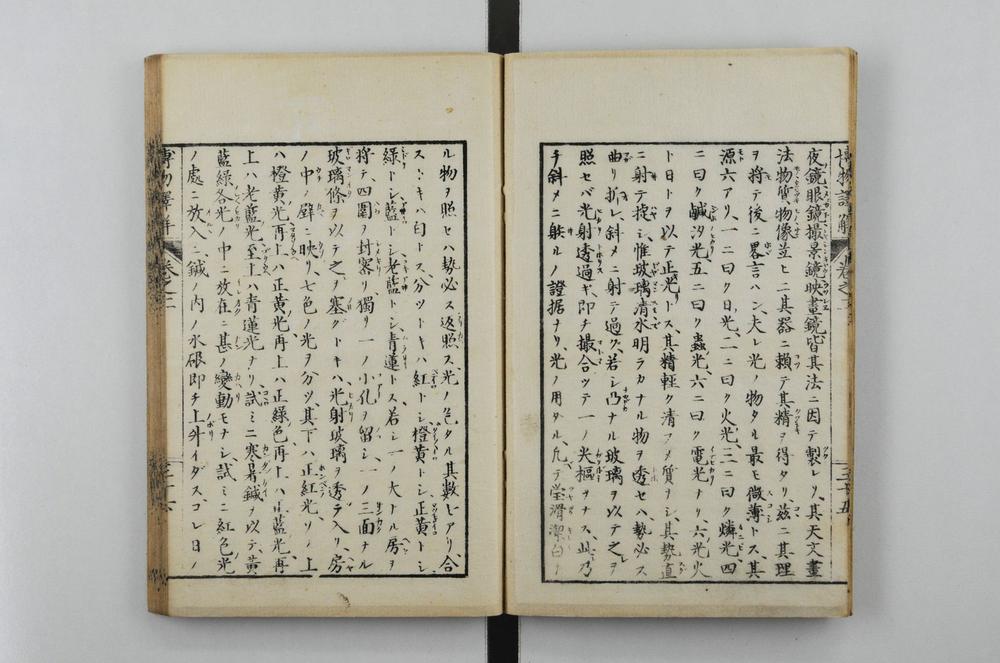 夜鏡眼鏡撮景鏡映畫鏡皆其法ニ因テ製レリ、其天文畫
法物質、物像並ヒニ其器ニ頼テ其精ヲ得タリ、茲ニ其理
ヲ将テ後ニ畧言ハン、夫レ光ノ物タル最モ微薄トス、其
源六アリ、一ニ曰ク日光、二ニ曰ク火光、三ニ曰ク燐光四
ニ曰ク鹹汐光五ニ曰ク蟲光、六ニ曰ク電光ナリ、六光火
ト日トヲ以テ正光トス、其精輕ク清フメ質ナシ、其勢直
ニ射テ捷シ、惟玻璃清水明ラカナル物ヲ透セハ勢必ス
曲リ折レ、斜メニ射テ過ク、若シ凸ナル玻璃ヲ以テ之レ
照セバ光射透過キ、即チ撮合ツテ一ノ光樞ヲナス、此乃
チ斜メニ射ルノ證据ナリ、光ノ用タル、凡テ瑩滑潔白ナ
博物譯解 巻之二 三十五
ル物ヲ照セハ勢必ス返照ス、光ノ色タル其數七アリ、合
ストキハ白トス、分ツトキハ紅トシ、橙黄トシ、正黄トシ
綠トシ、藍トシ、老藍トシ、青蓮トス、若シ一ノ大ナル房ヲ
将テ、四圍ヲ封密リ、獨リ一ノ小孔ヲ留シ、一ノ三面ナル
玻璃條ヲ以テ之ヲ塞クトキハ光射玻璃ヲ透テ入リ、房
ノ中ノ壁ニ映リ、七色ノ光ヲ分ツ、其下ハ正紅光リノ上
ハ橙黄光、再上ハ正黄光、再上ハ正綠色再上ハ正藍光、再
上ハ老藍光、至上ハ青蓮光ナリ、試ミニ寒暑鍼ヲ以テ、黄
藍綠各光ノ中ニ放在ニ甚ノ變動モナシ、試ミニ紅色光
ノ處ニ放入ニ、鍼ノ内ノ水銀即チ上升イダス、コレ日ノ
博物譯解 巻之二